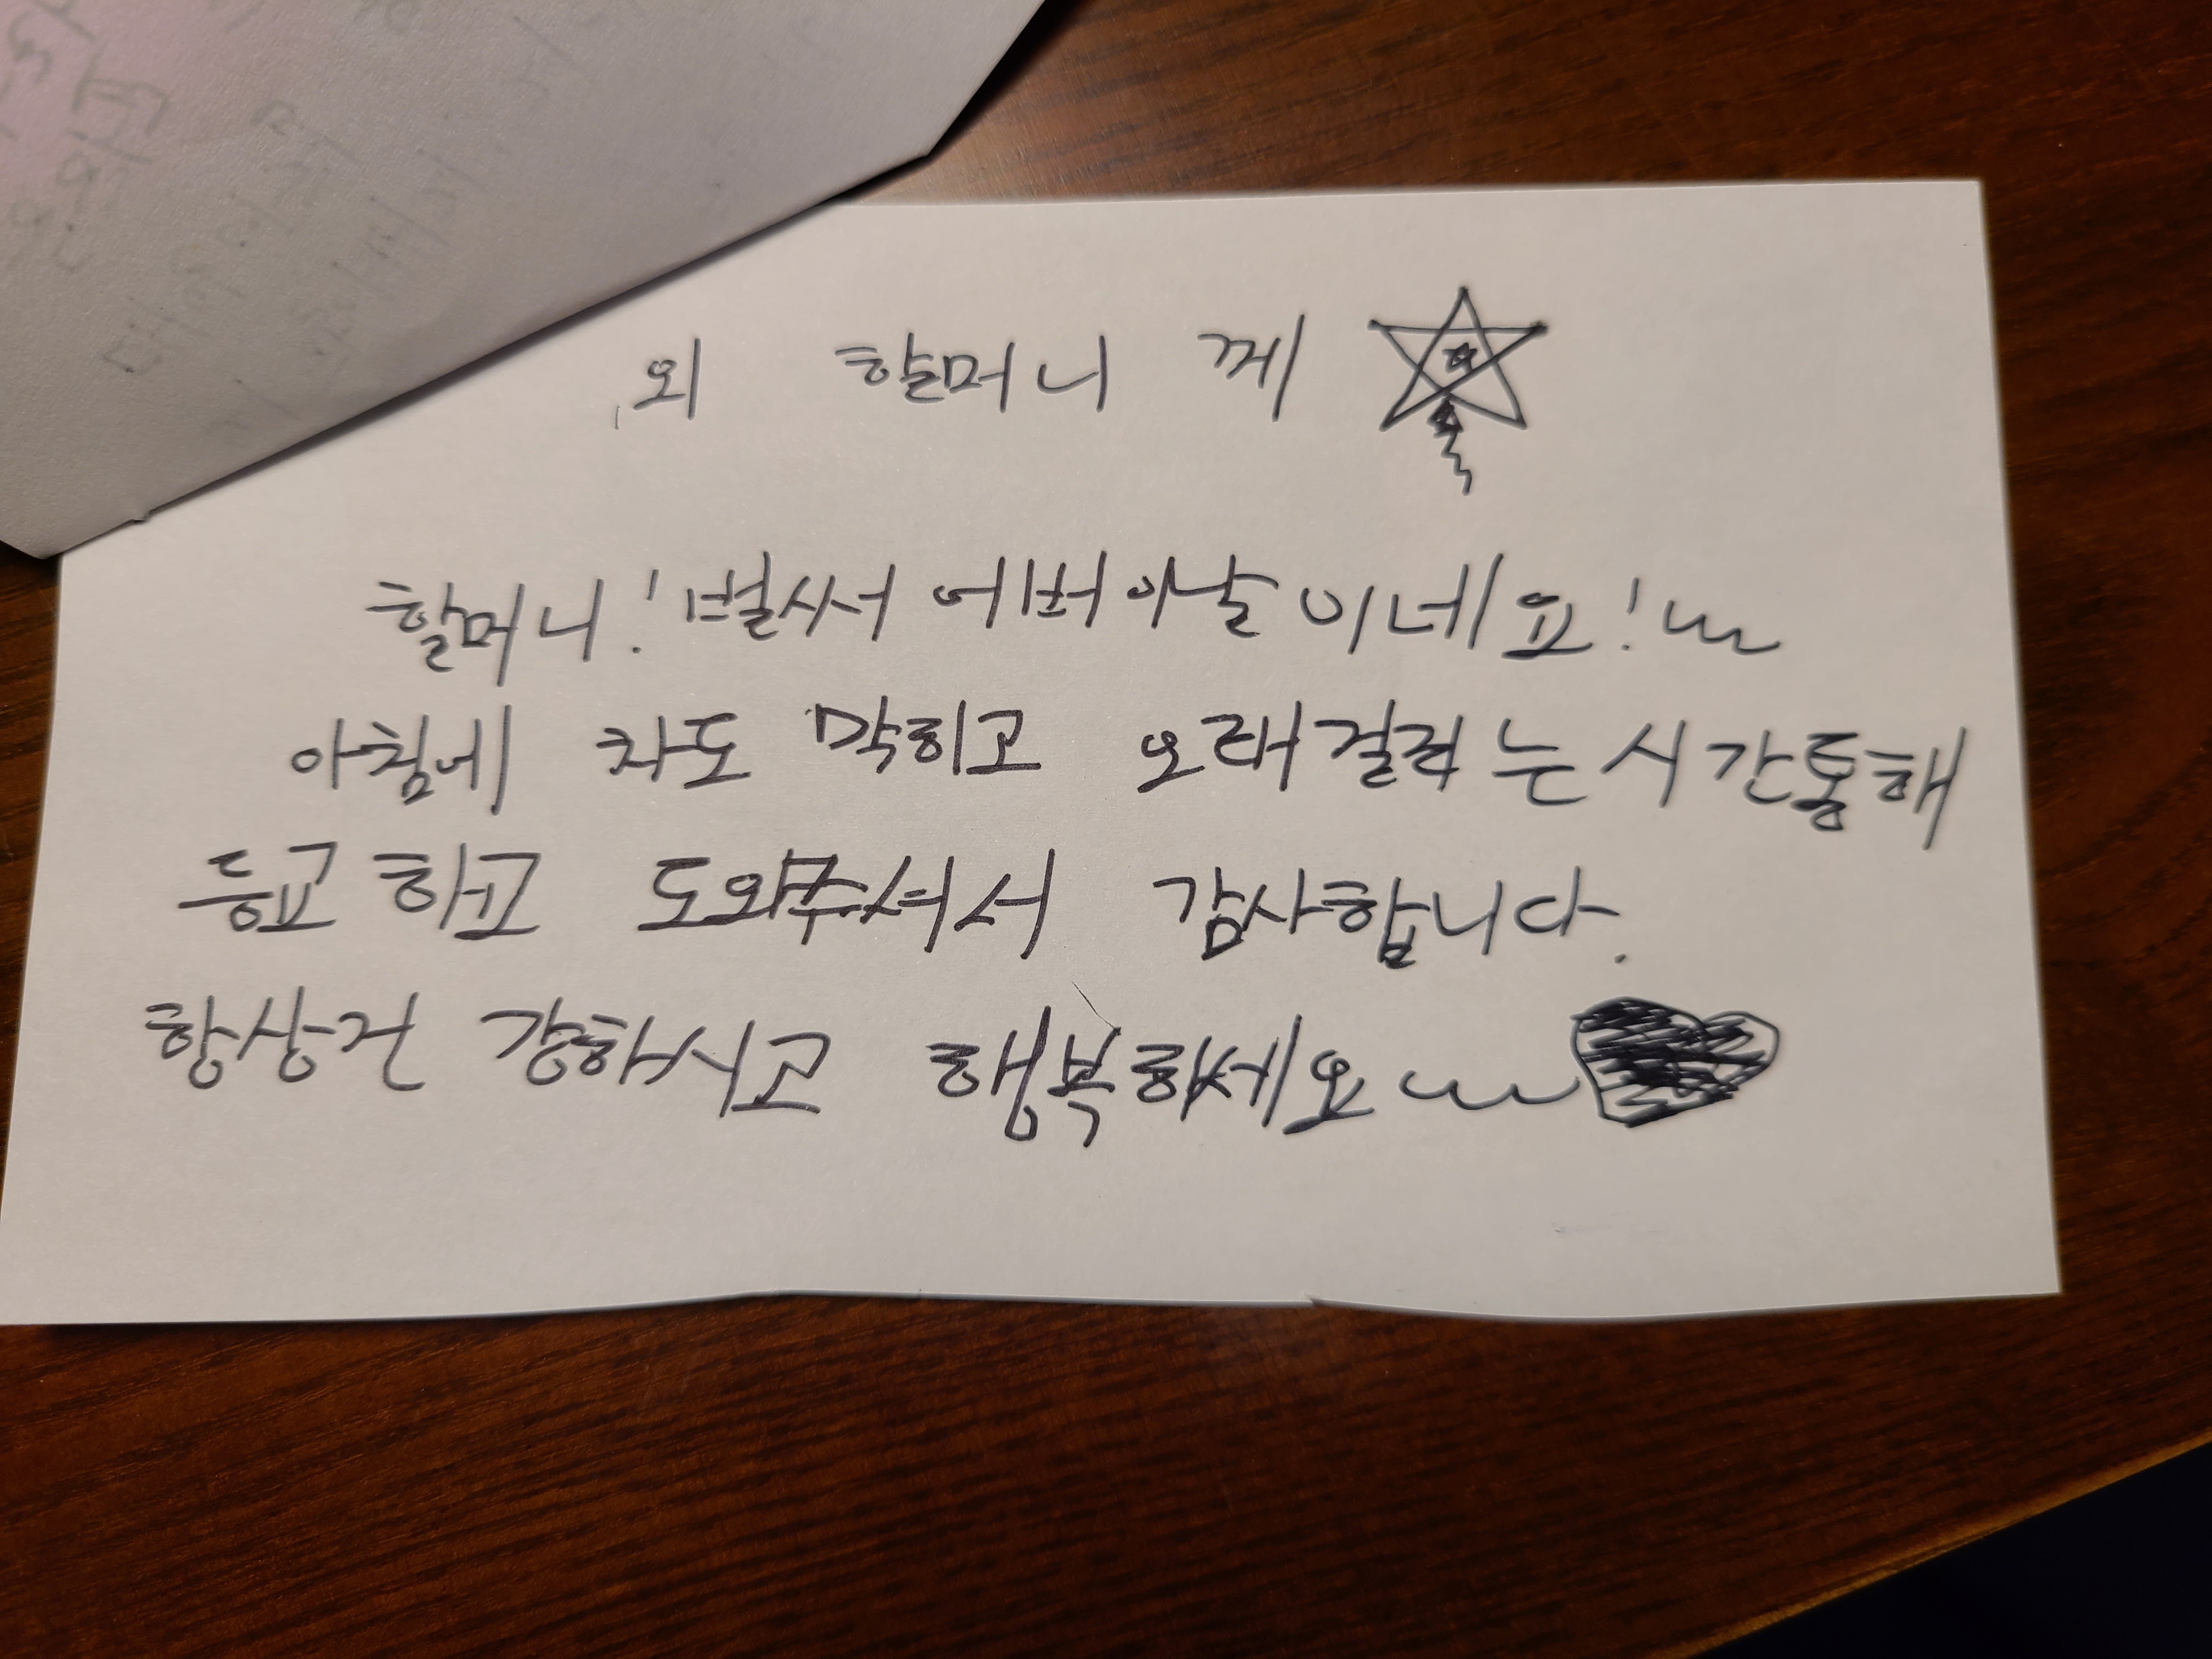 외 할머니 께
할머니! 벌써 어버이날 이네요!
아침에 차도 막히고 오래걸리는 시간통해
등교 하고 도와주셔서 감사합니다.
항상건 강하시고 행복하세요